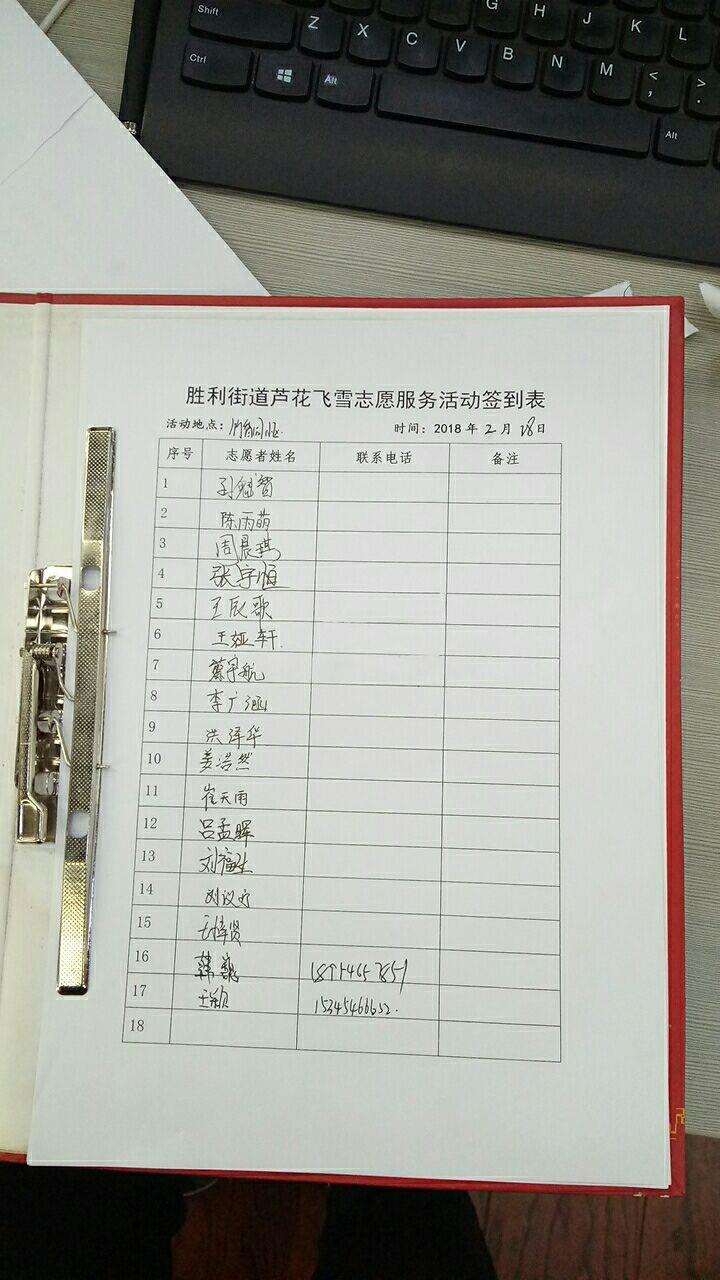 Shift Z X C V B N M < , > .
G H J K L
Ctrl Alt Alt
胜利街道芦花飞雪志愿服务活动签到表
活动地点: 时间: 2018 年 2 月 28 日
序号 志愿者姓名 联系电话 备注
1
2 陈雨萌
3 周晨琪
4 张宇恒
5 王辰歌
6 王娅轩
7 蔡宇航
8 李广涵
9 洪泽华
10 姜浩然
11 崔天雨
12 吕孟晖
13 刘福
14 刘议
15 贤
16 韩
17 王颖 15345466652
18